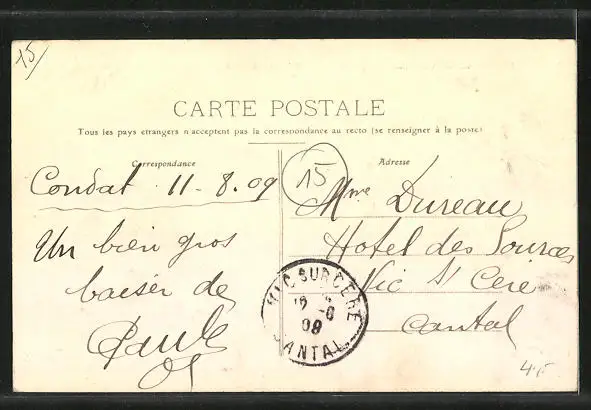 15
CARTE POSTALE
Tous les pays etrangers n'acceptent pas la correspondance au recto (se renseigner à la poste)
Correspondance
Condat 11-8.09
Un bien gros
baiser de
Paule
15
Adresse
Mme Dureau
Hotel des Sources
Vic S/ Cère
Cantal
VIC SUR CERE
09
CANTAL